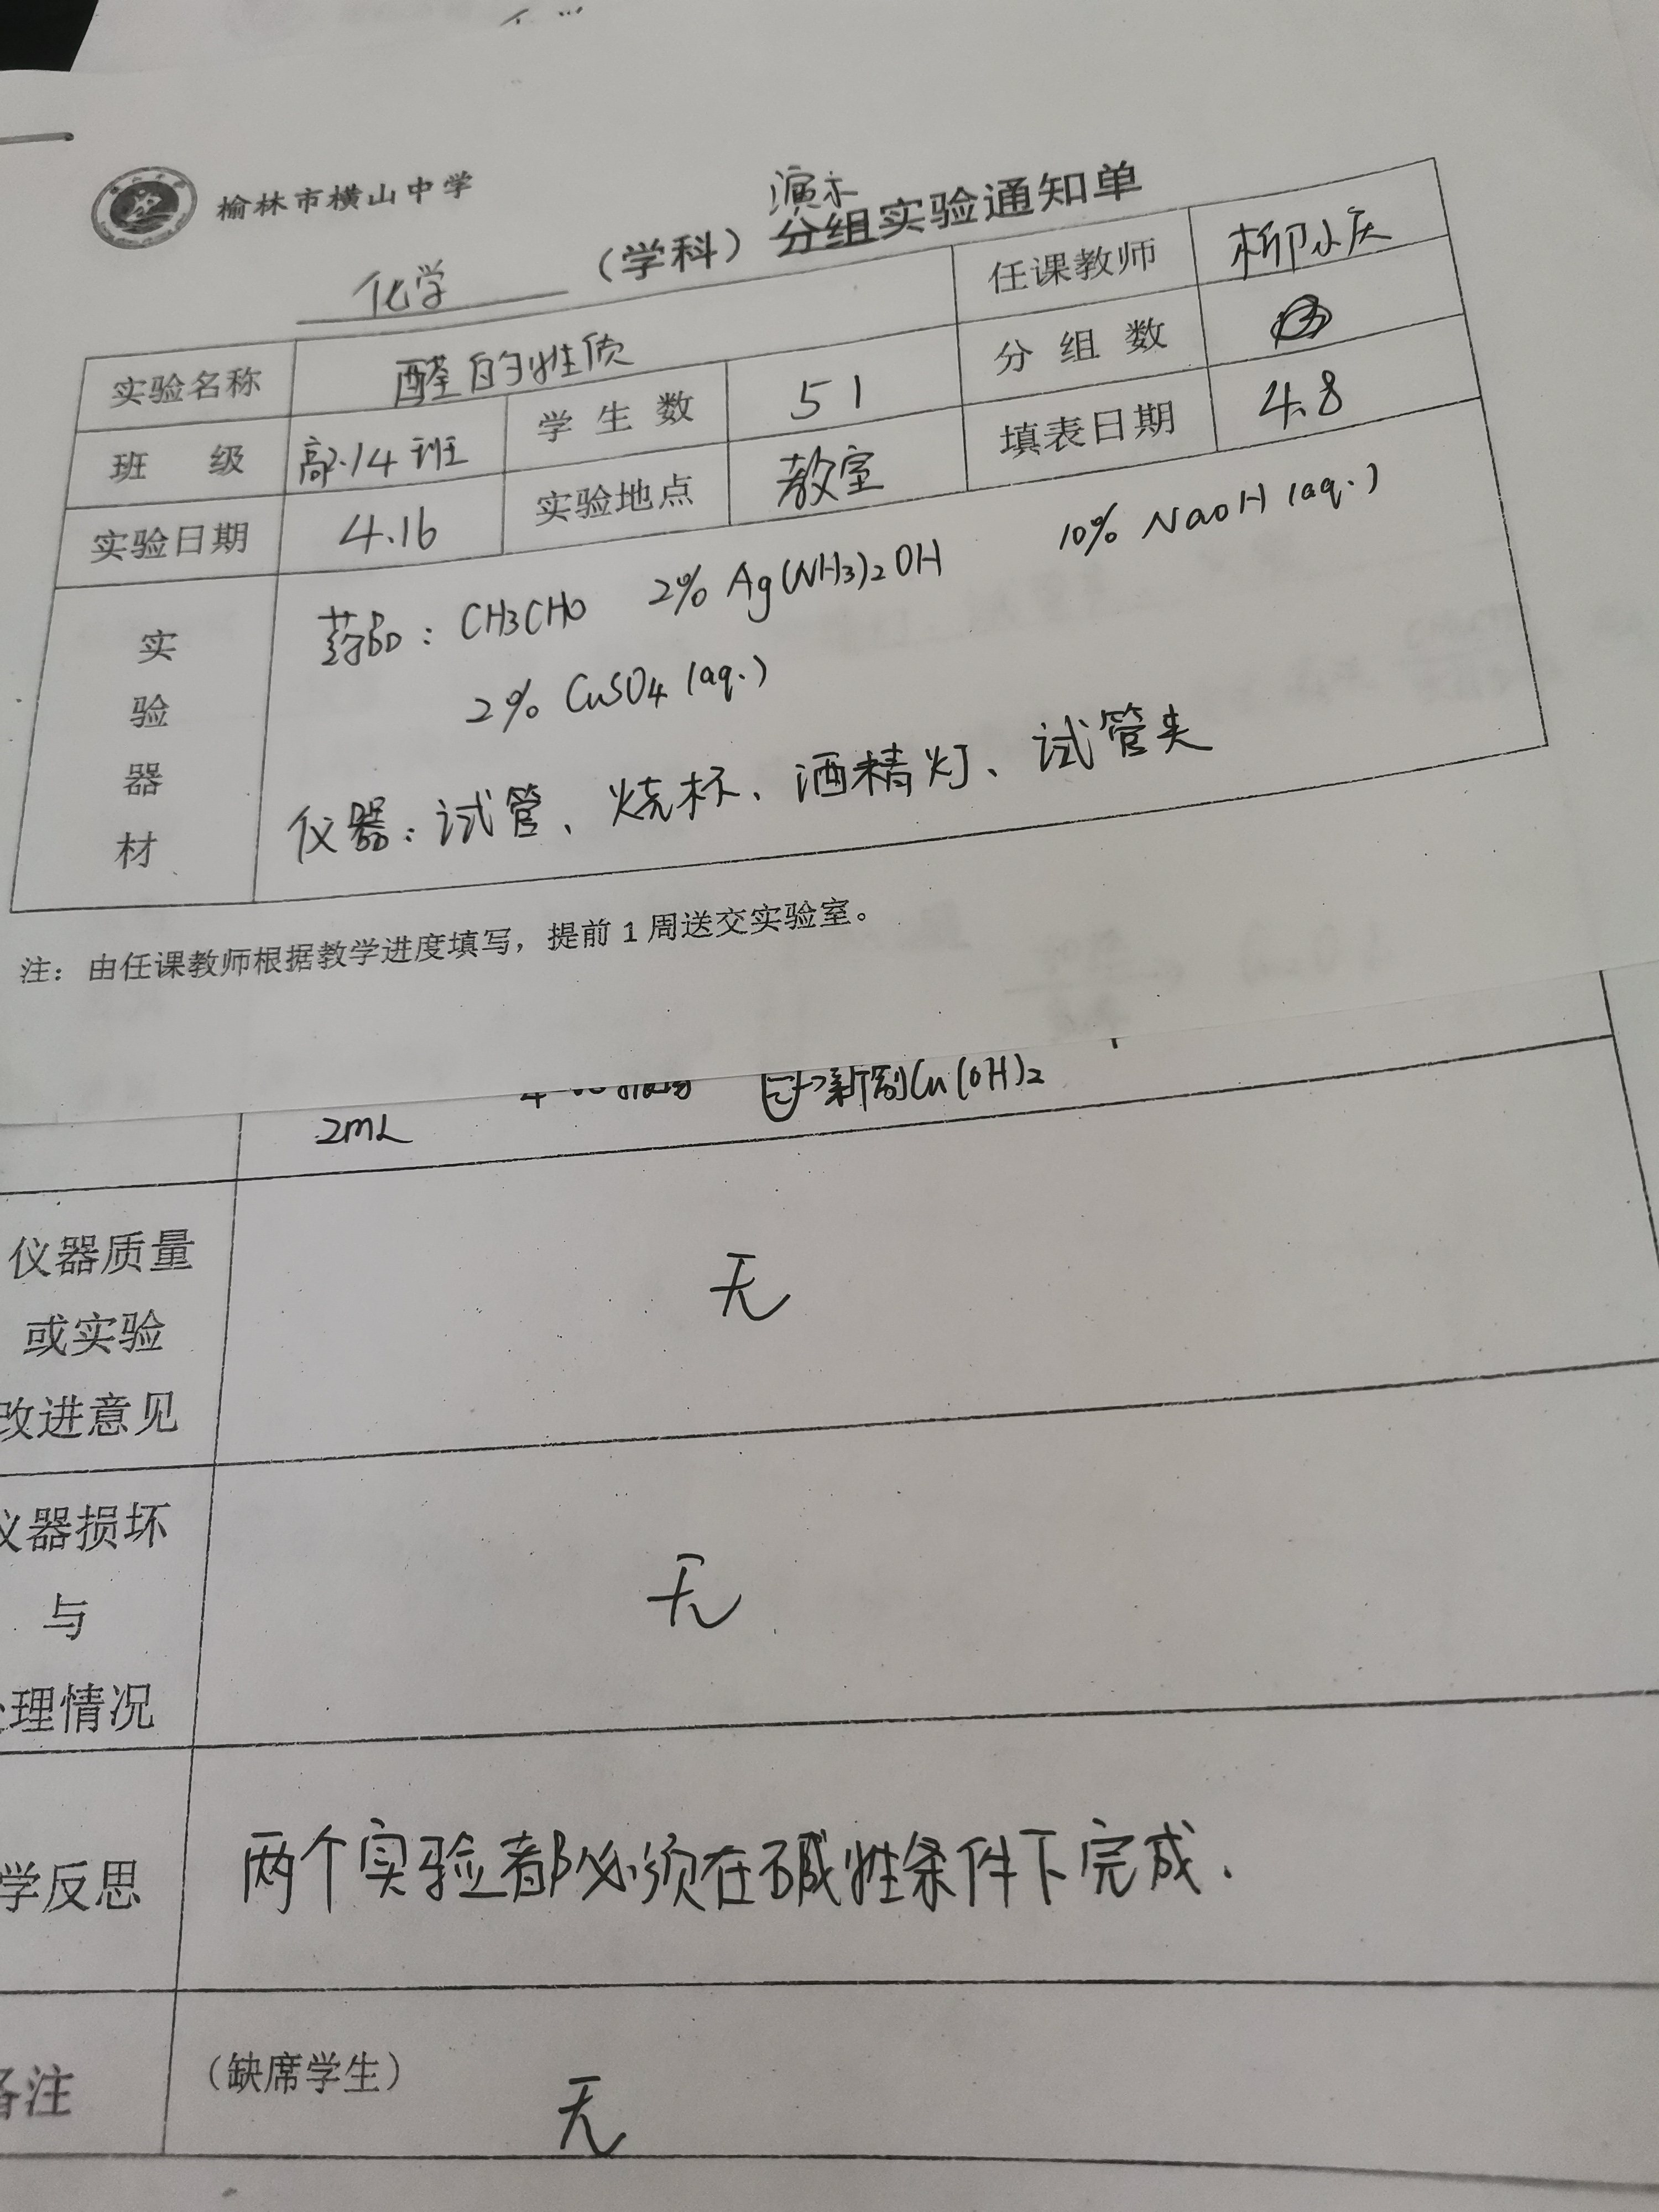 榆林市横山中学
化学（学科）演示分组实验通知单
实验名称 醛的性质 任课教师 柳小庆
班级 高2.14班 学生数 51 分组数
实验日期 4.16 实验地点 教室 填表日期 4.8
实验器材
药品：CH3CHO 2% Ag(NH3)2OH 10% NaOH (aq.)
2% CuSO4 (aq.)
仪器：试管、烧杯、酒精灯、试管夹
注：由任课教师根据教学进度填写，提前1周送交实验室。
新制Cu(OH)2
2mL
仪器质量
或实验 无
改进意见
仪器损坏
与 无
理情况
学反思 两个实验都必须在碱性条件下完成.
备注 （缺席学生） 无